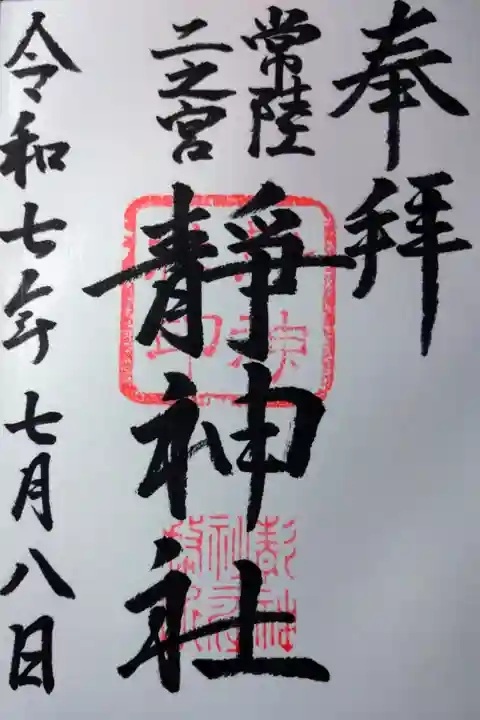 奉拝
常陸
二之宮
静神社
令和七年七月八日